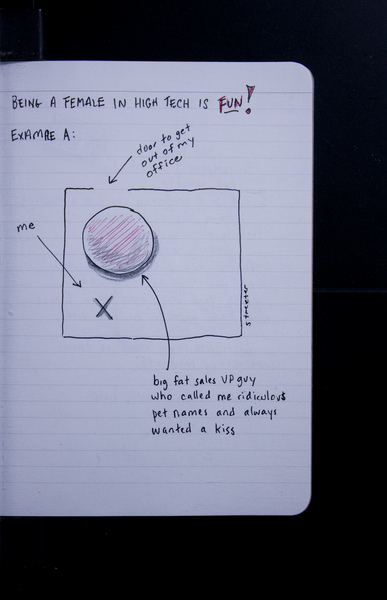 BEING A FEMALE IN HIGH TECH IS FUN!
EXAMPLE A:
door to get
out of my
office
me
streeter
big fat sales VP guy
who called me ridiculous
pet names and always
wanted a kiss